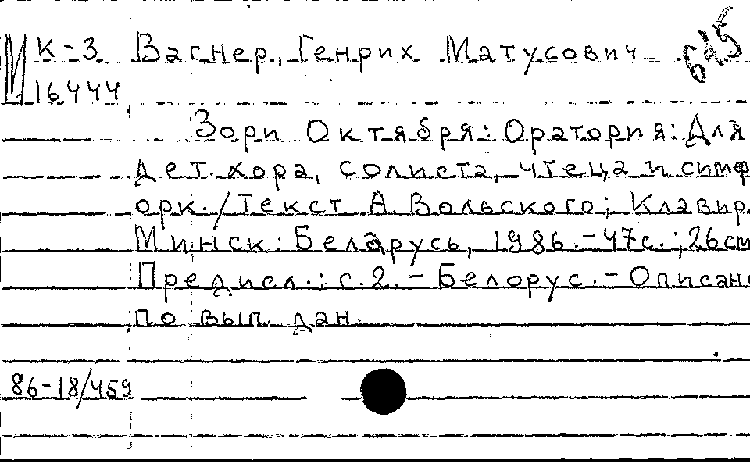 К-3 Вагнер, Генрих Матусович 625
М 16444
Зори Октября: Оратория: Для
дет. хора, солиста, чтеца и симф
орк. / Текст А. Вольского; Клавир.
Минск: Беларусь, 1986. - 47с.; 26см
Предисл.: с. 2. - Белорус. - Описано
по вып. дан.
86-18/459